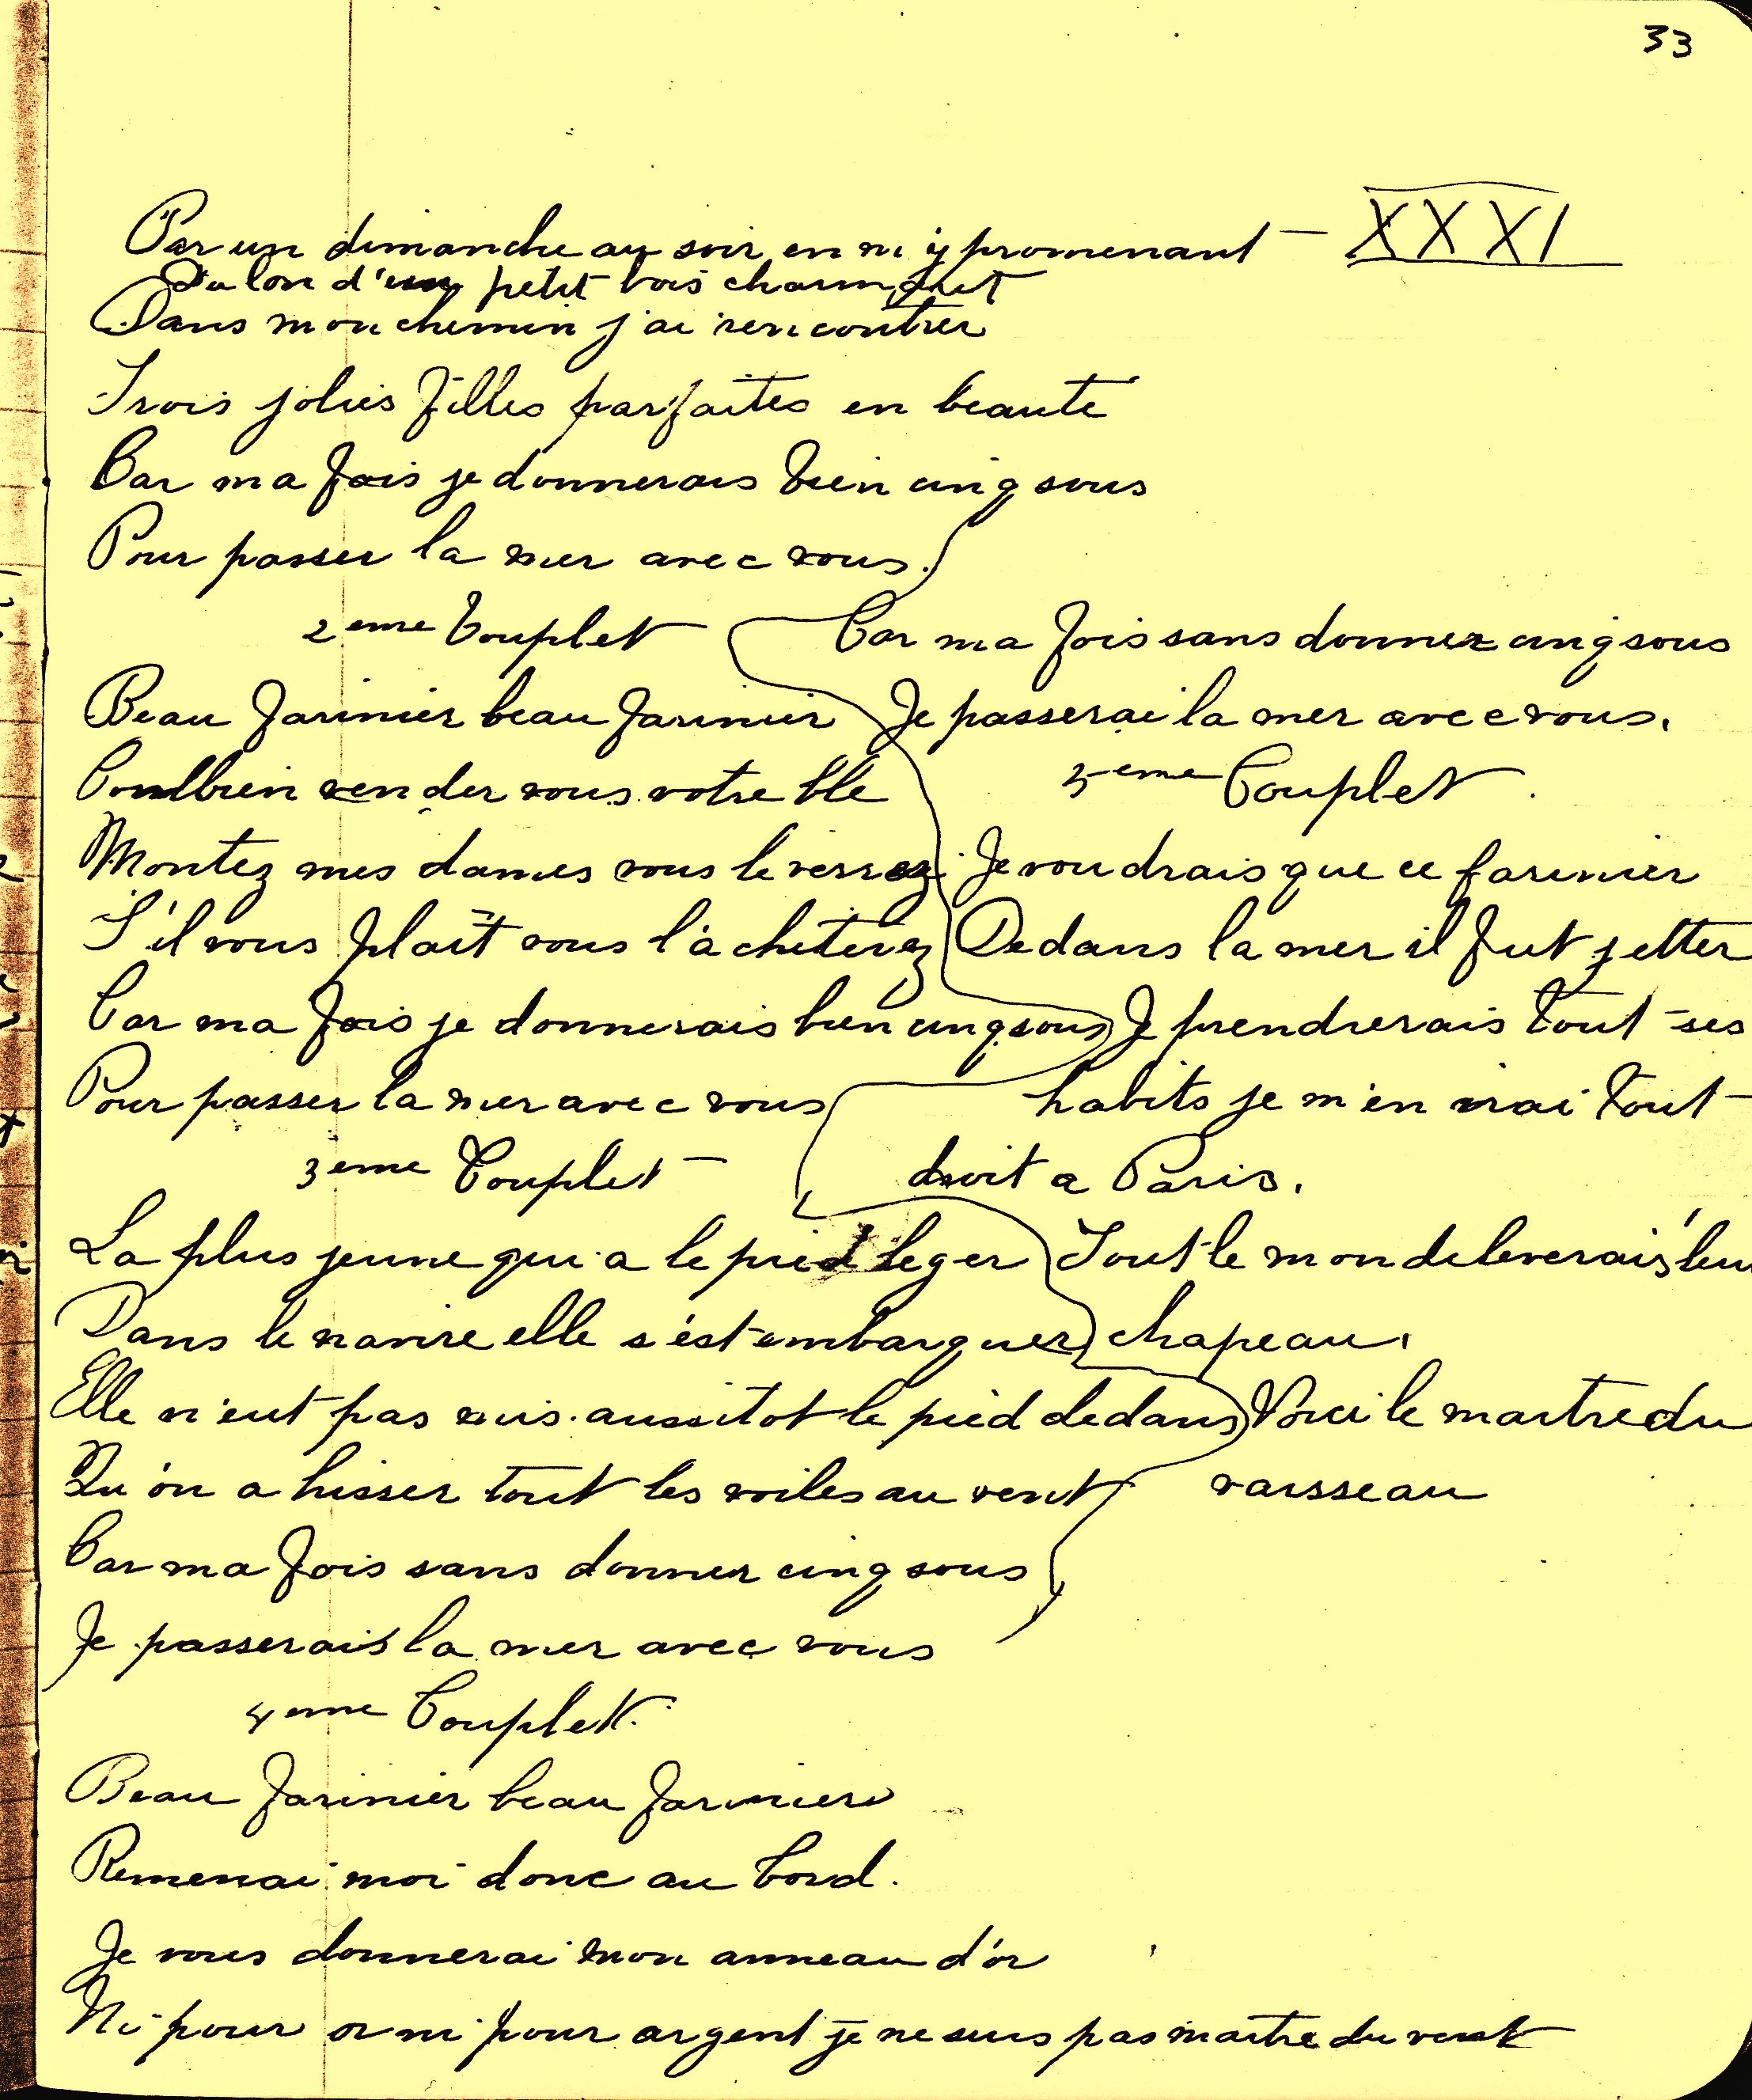 33
Par un dimanche au soir en m'y promenant – XXXI
Du lon d'un petit bois charmant
Dans mon chemin j'ai rencontrer
Trois jolies filles parfaites en beaute
Car ma fois je donnerais bien cinq sous
Pour passer la mer avec vous.
2eme Couplet
Beau farinier beau farinier
Combien vender vous votre ble
Montez mes dames vous le verrez
S'il vous plaît vous l'acheterez
Car ma fois je donnerais bien cinq sous
Pour passer la mer avec vous
3eme Couplet
La plus jeune qui a le pied leger
Dans le navire elle s'est embarquer
Elle n'eut pas mis aussitot le pied dedans
Qu'on a hisser tout les voiles au vent
Car ma fois sans donner cinq sous
Je passerais la mer avec vous
4eme Couplet.
Beau farinier beau farinier
Remenai moi donc au bord.
Je vous donnerai mon anneau d'or
Ni pour or ni pour argent je ne suis pas maitre du vent
Car ma fois sans donner cinq sous
Je passerai la mer avec vous.
5eme Couplet.
Je voudrais que ce farinier
Dedans la mer il fut jetter
Je prendrerais tout ses
habits je m'en irai tout
droit a Paris.
Tout le monde leverais leur
chapeau.
Voici le maitre du
vaisseau